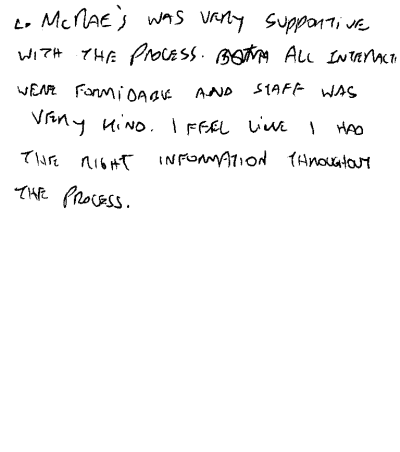 L. McRAE's WAS VERY SUPPORTIVE
WITH THE PROCESS. ALL INTERACTI
WERE FORMIDABLE AND STAFF WAS
VERY KIND. I FEEL LIKE I HAD
THE RIGHT INFORMATION THROUGHOUT
THE PROCESS.